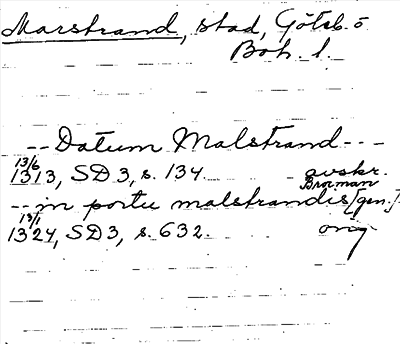 Marstrand, stad, Göteb. o
Boh. l.
-- Datum Malstrand ---
13/6
1313, SD 3, s. 134. avskr.
Brocman
-- in portu malstrandis [gen.].
13/1
1324, SD 3, s. 632. orig